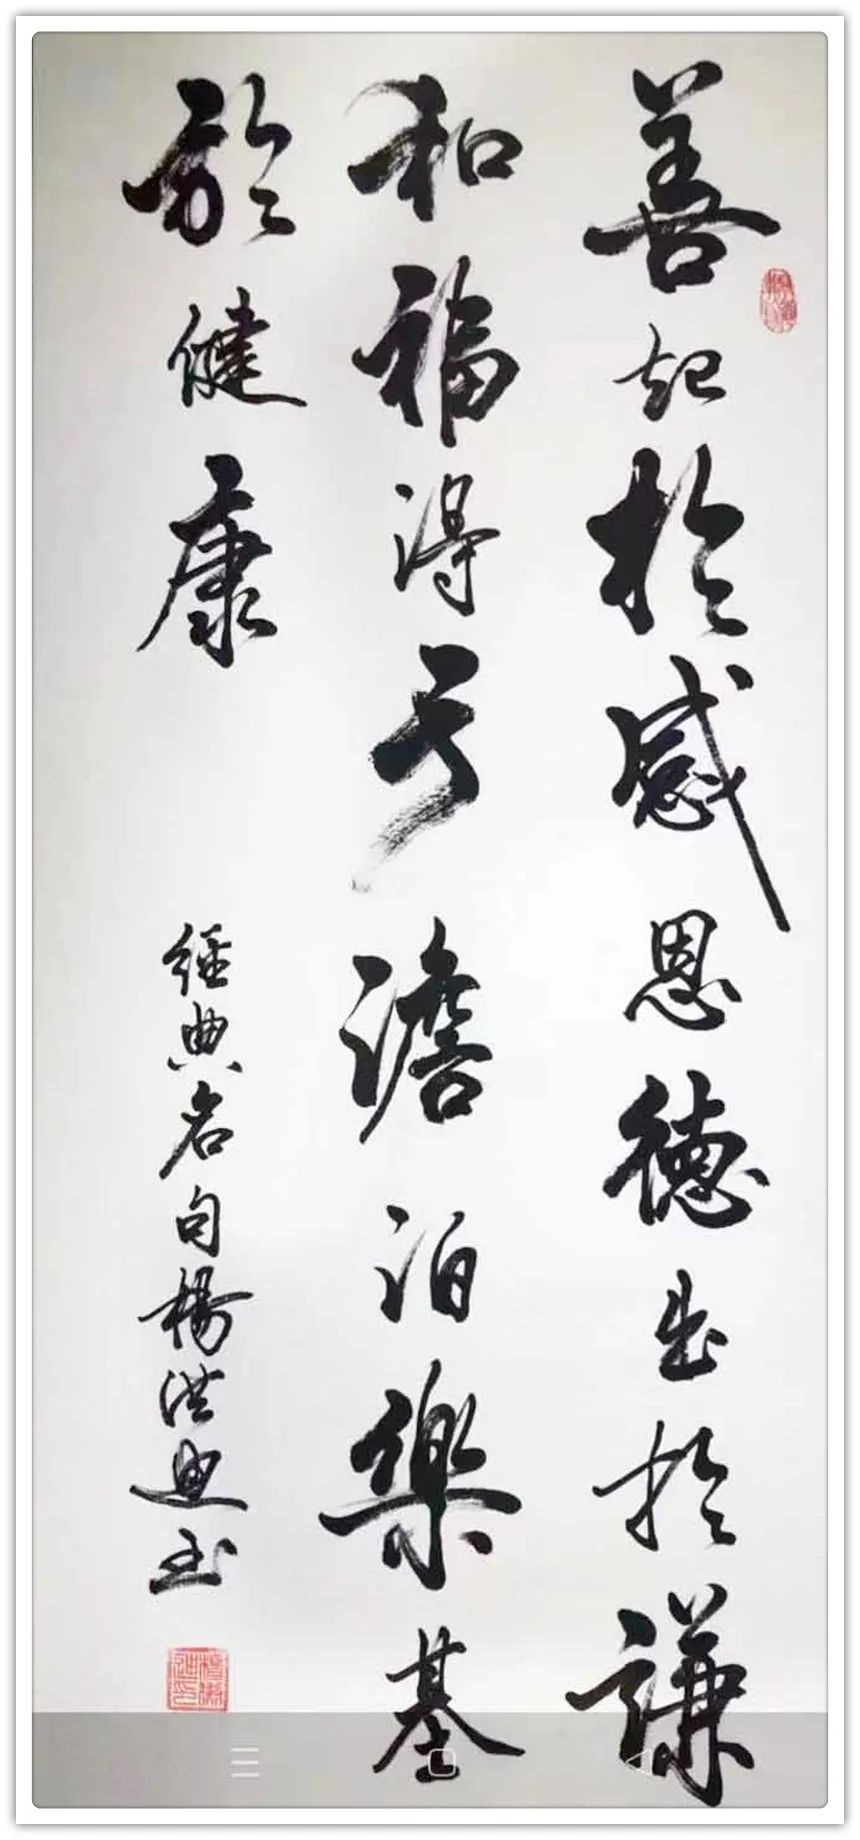 善起於感恩德出於謙
和福得于澹泊樂基
於健康
經典名句楊洪迪书